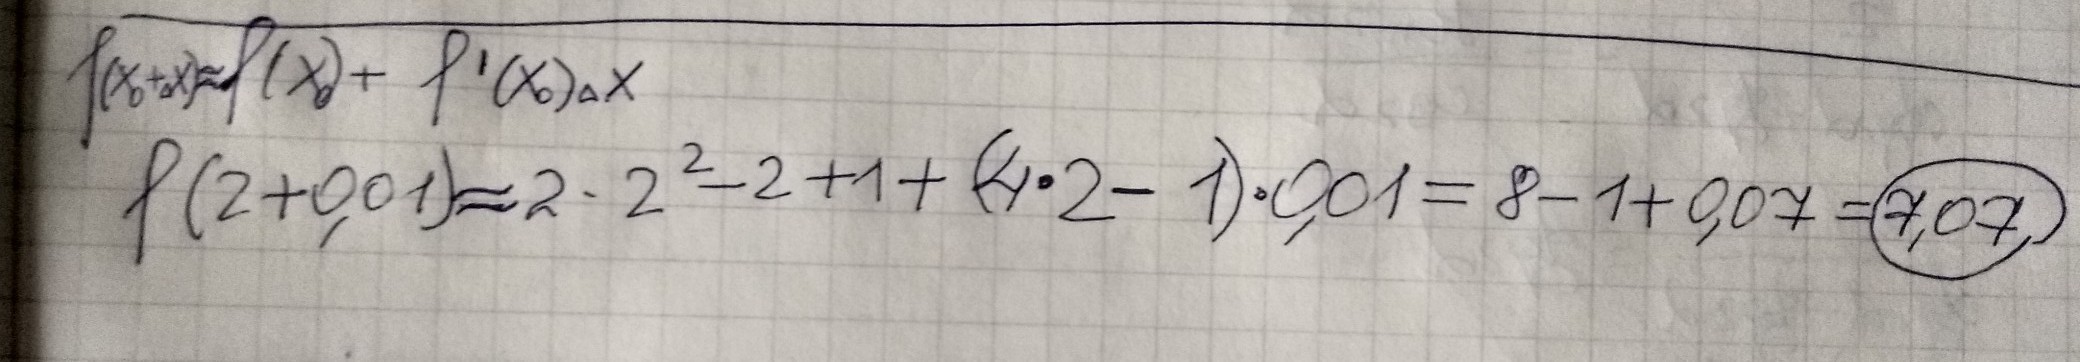 f(x₀+Δx)≈f(x₀)+ f'(x₀)Δx
f(2+0,01)≈2·2²-2+1+(4·2-1)·0,01=8-1+0,07=7,07